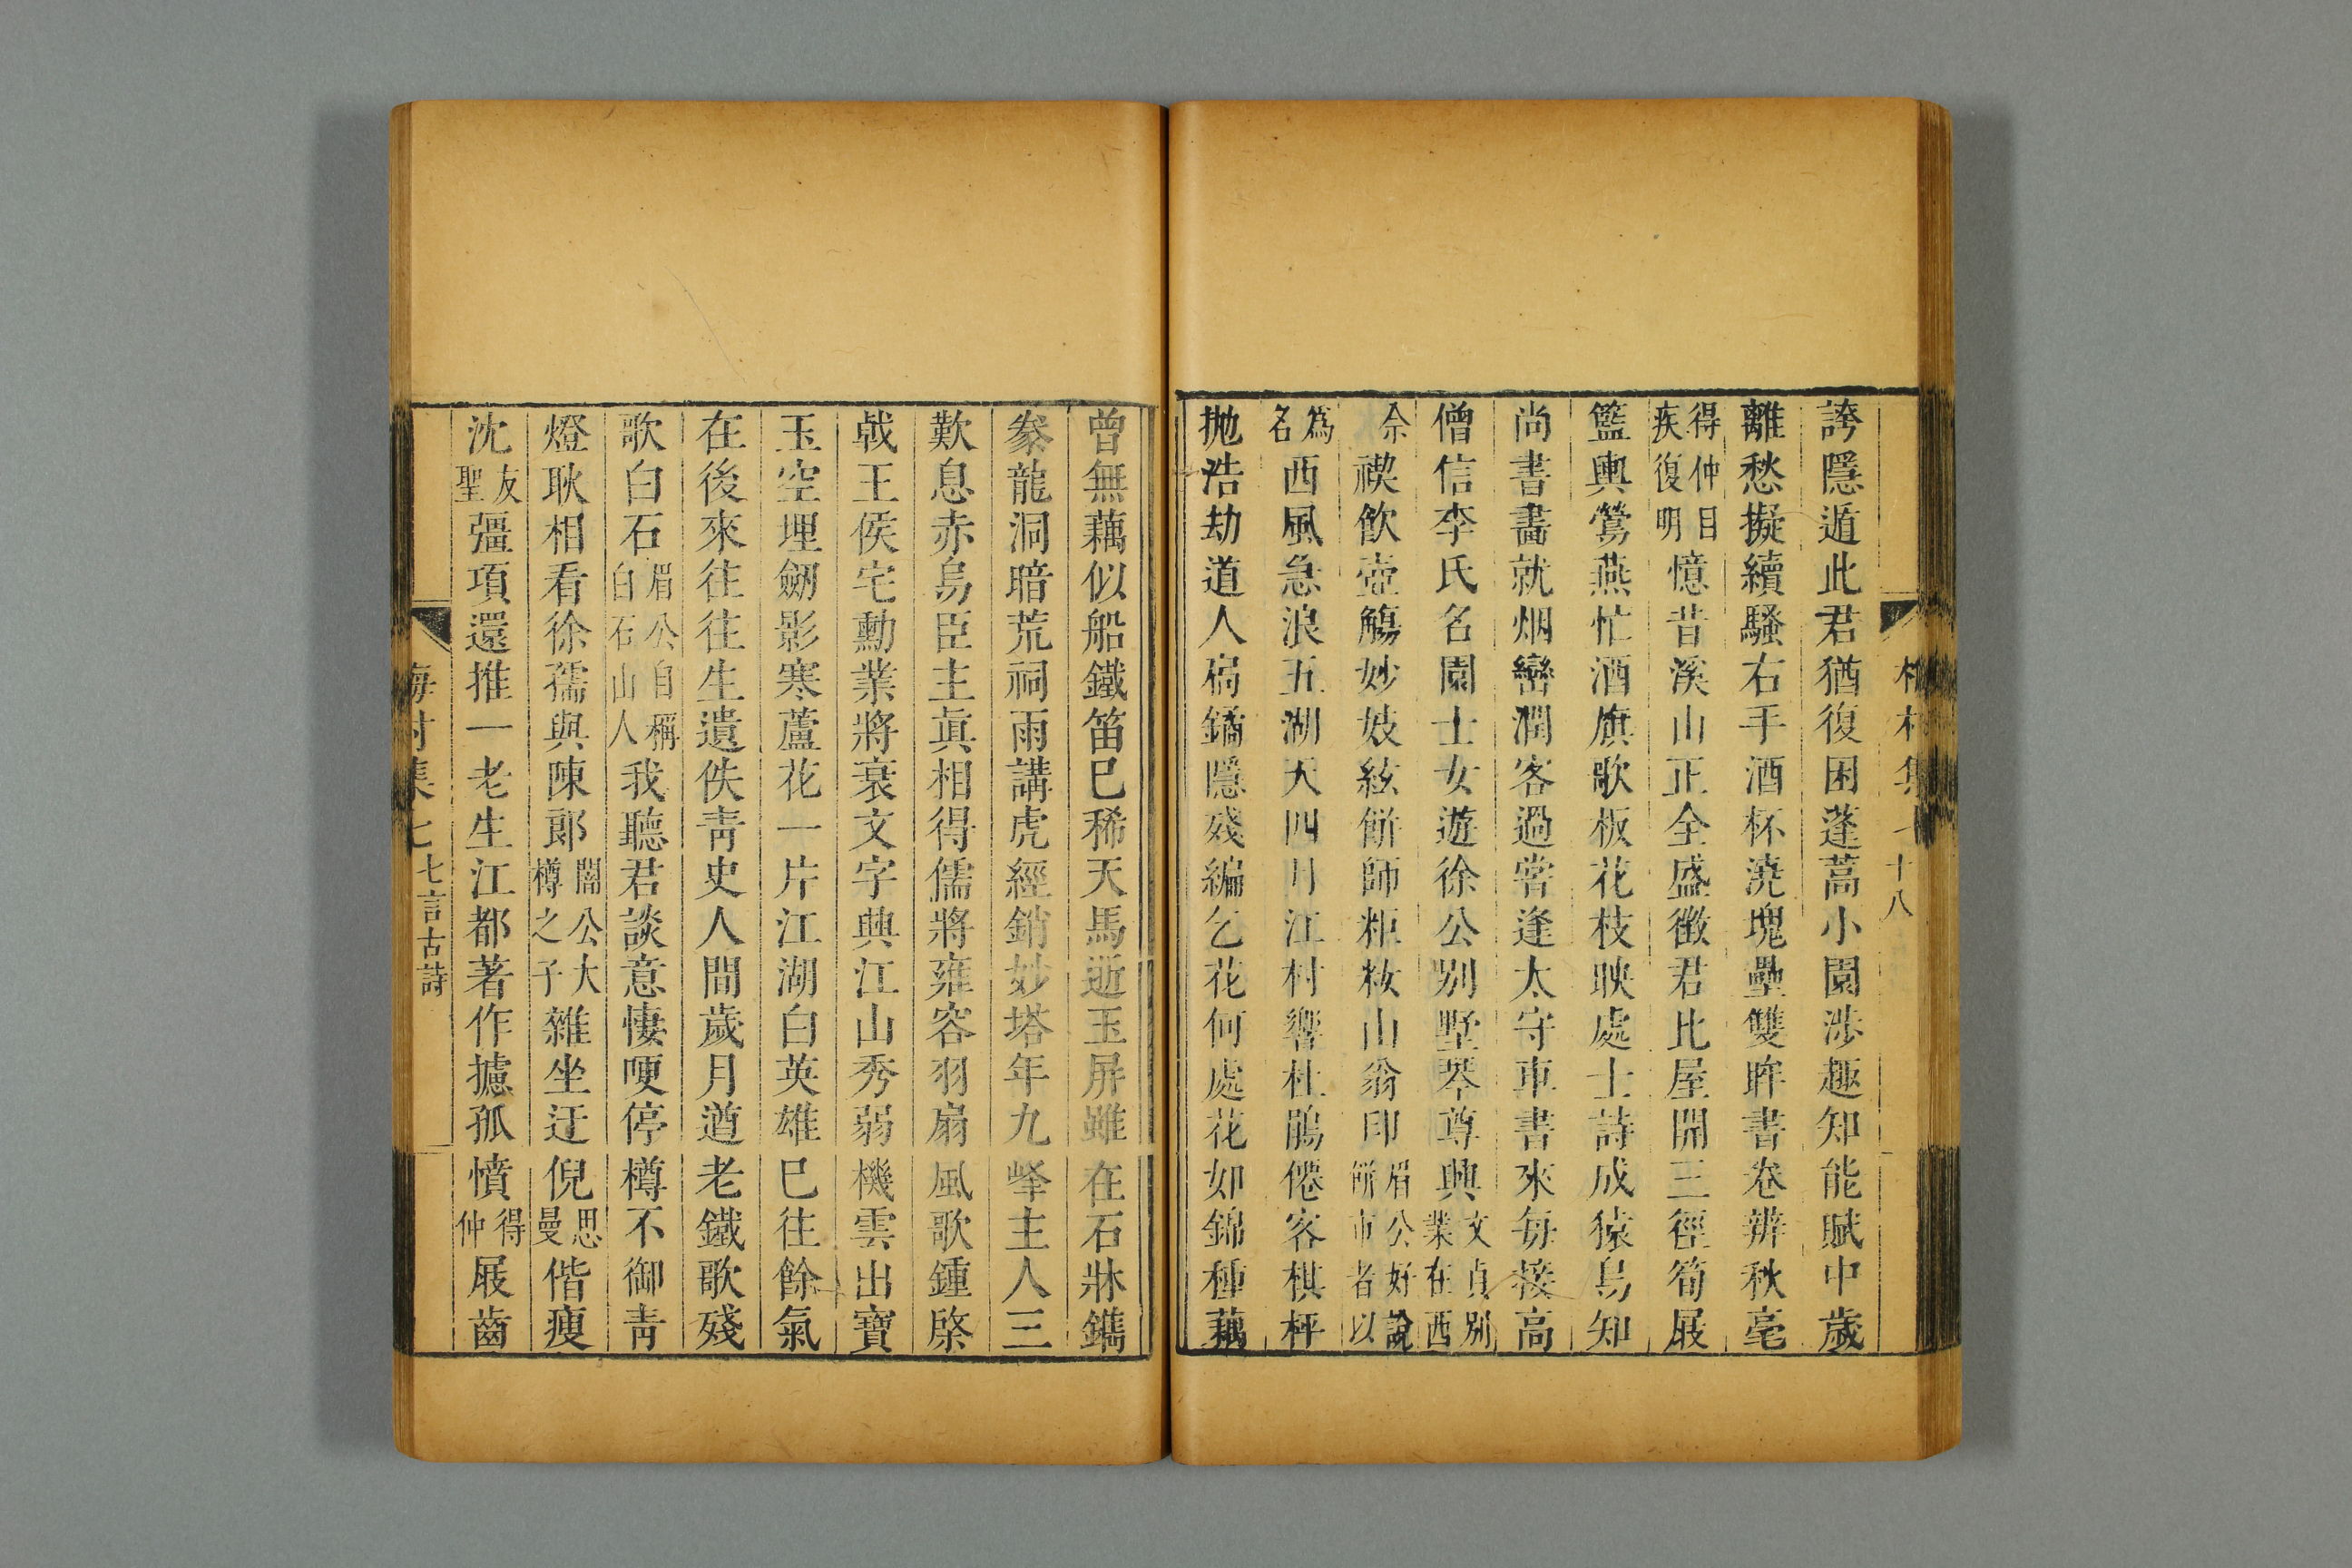 十八
誇隱遁此君猶復困蓬蒿小園渉趣知能賦中歲
離愁擬續騷右手酒杯澆塊壘雙眸書卷辨秋毫
得仲目
疾復明
憶昔溪山正全盛徵君比屋開三徑筍屐
籃輿鶯燕忙酒旗歌板花枝映處士詩成猿鳥知
尚書畫就烟巒潤客過嘗逢太守車書來每接高
僧信李氏名園士女遊徐公別墅琴尊興
文貞別
業在西
佘
禊飲壺觴妙妓絃餅師粔籹山翁印
眉公好說
餅市者以
為
名
西風急浪五湖天四月江村響杜鵑倦客棋枰
拋浩劫道人扃鐍隱殘編乞花何處花如錦種藕
曾無藕似船鐵笛巳稀天馬逝玉屏雖在石牀鐫
豢龍洞暗荒祠雨講虎經銷妙塔年九峰主人三
歎息赤烏臣主眞相得儒將雍容羽扇風歌鍾棨
戟王侯宅勳業將衰文字興江山秀弱機雲出寶
玉空埋劒影寒蘆花一片江湖白英雄巳往餘氣
在後來往往生遺佚靑史人間歲月遒老鐵歌殘
歌白石
眉公自稱
白石山人
我聽君談意悽哽停樽不御靑
燈耿相看徐孺與陳郎
闇公大
樽之子
雜坐迂倪
思
曼
偕瘦
沈
友
聖
彊項還推一老生江都著作攄孤憤
得
仲
屐齒
梅村集七
七言古詩